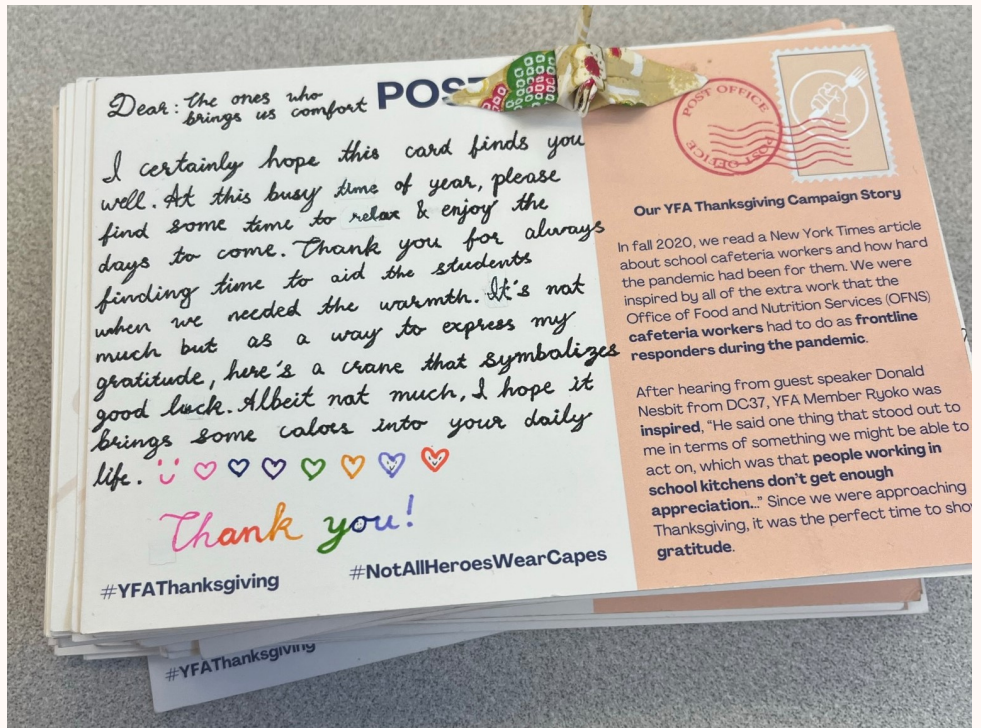 Dear: the ones who
brings us comfort
POS
I certainly hope this card finds you
well. At this busy time of year, please
find some time to relax & enjoy the
days to come. Thank you for always
finding time to aid the students
when we needed the warmth. It's not
much but as a way to express my
gratitude, here's a crane that symbolizes
good luck. Albeit not much, I hope it
brings some colors into your daily
life.
Thank you!
#YFAThanksgiving
#NotAllHeroesWearCapes
POST OFFICE
POST OFFICE
Our YFA Thanksgiving Campaign Story
In fall 2020, we read a New York Times article
about school cafeteria workers and how hard
the pandemic had been for them. We were
inspired by all of the extra work that the
Office of Food and Nutrition Services (OFNS)
cafeteria workers had to do as frontline
responders during the pandemic.
After hearing from guest speaker Donald
Nesbit from DC37, YFA Member Ryoko was
inspired, "He said one thing that stood out to
me in terms of something we might be able to
act on, which was that people working in
school kitchens don't get enough
appreciation..." Since we were approaching
Thanksgiving, it was the perfect time to sho
gratitude.
#YFAThanksgiving